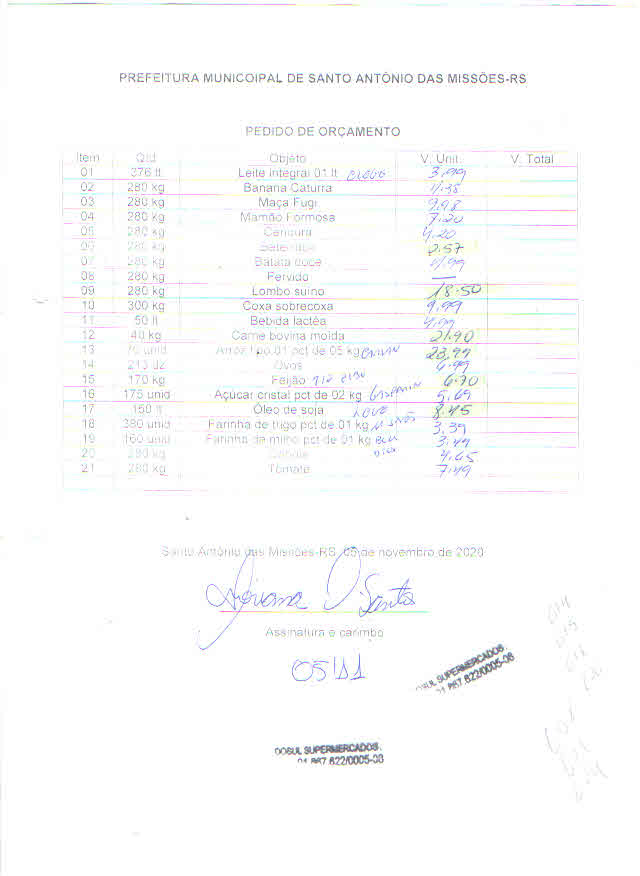 PREFEITURA MUNICOIPAL DE SANTO ANTÔNIO DAS MISSÕES-RS
PEDIDO DE ORÇAMENTO
Item Qtd Objeto V. Unit. V. Total
01 376 lt Leite integral 01 lt 3.99
02 280 kg Banana Caturra
03 280 kg Maça Fugi 9,98
04 280 kg Mamão Formosa 7.20
05 280 kg Cenoura 4.20
06 280 kg Beterraba 2.57
07 280 kg Batata doce
08 280 kg Fervido —
09 280 kg Lombo suíno 18.50
10 300 kg Coxa sobrecoxa 9.99
11 50 lt Bebida lactéa 4,99
12 40 kg Carne bovina moída 21.90
13 70 unid Arroz tipo 01 pct de 05 kg 23,99
14 213 dz Ovos 6.99
15 170 kg Feijão 6.70
16 175 unid Açúcar cristal pct de 02 kg 5,69
17 150 lt Óleo de soja 8.45
18 380 unid Farinha de trigo pct de 01 kg 3.39
19 160 unid Farinha de milho pct de 01 kg 3.49
20 280 kg Cebola 4.65
21 280 kg Tomate 7,49
Santo Antônio das Missões-RS, 05 de novembro de 2020
Assinatura e carimbo
05/11
SUPERMERCADOS.
867.622/0005-08
COSUL SUPERMERCADOS.
01 867.622/0005-08